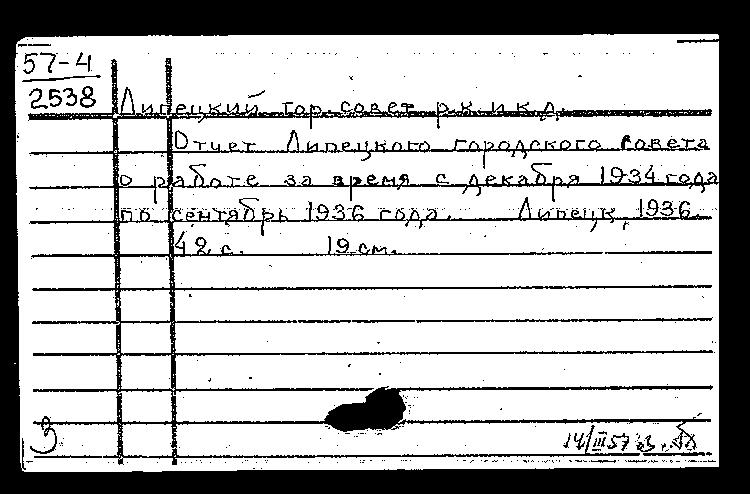 57-4
2538
Липецкий гор. совет р.к. и к.д.
Отчет Липецкого городского совета
о работе за время с декабря 1934 года
по сентябрь 1936 года. Липецк, 1936.
42 с. 19 см.
З
14/III 57